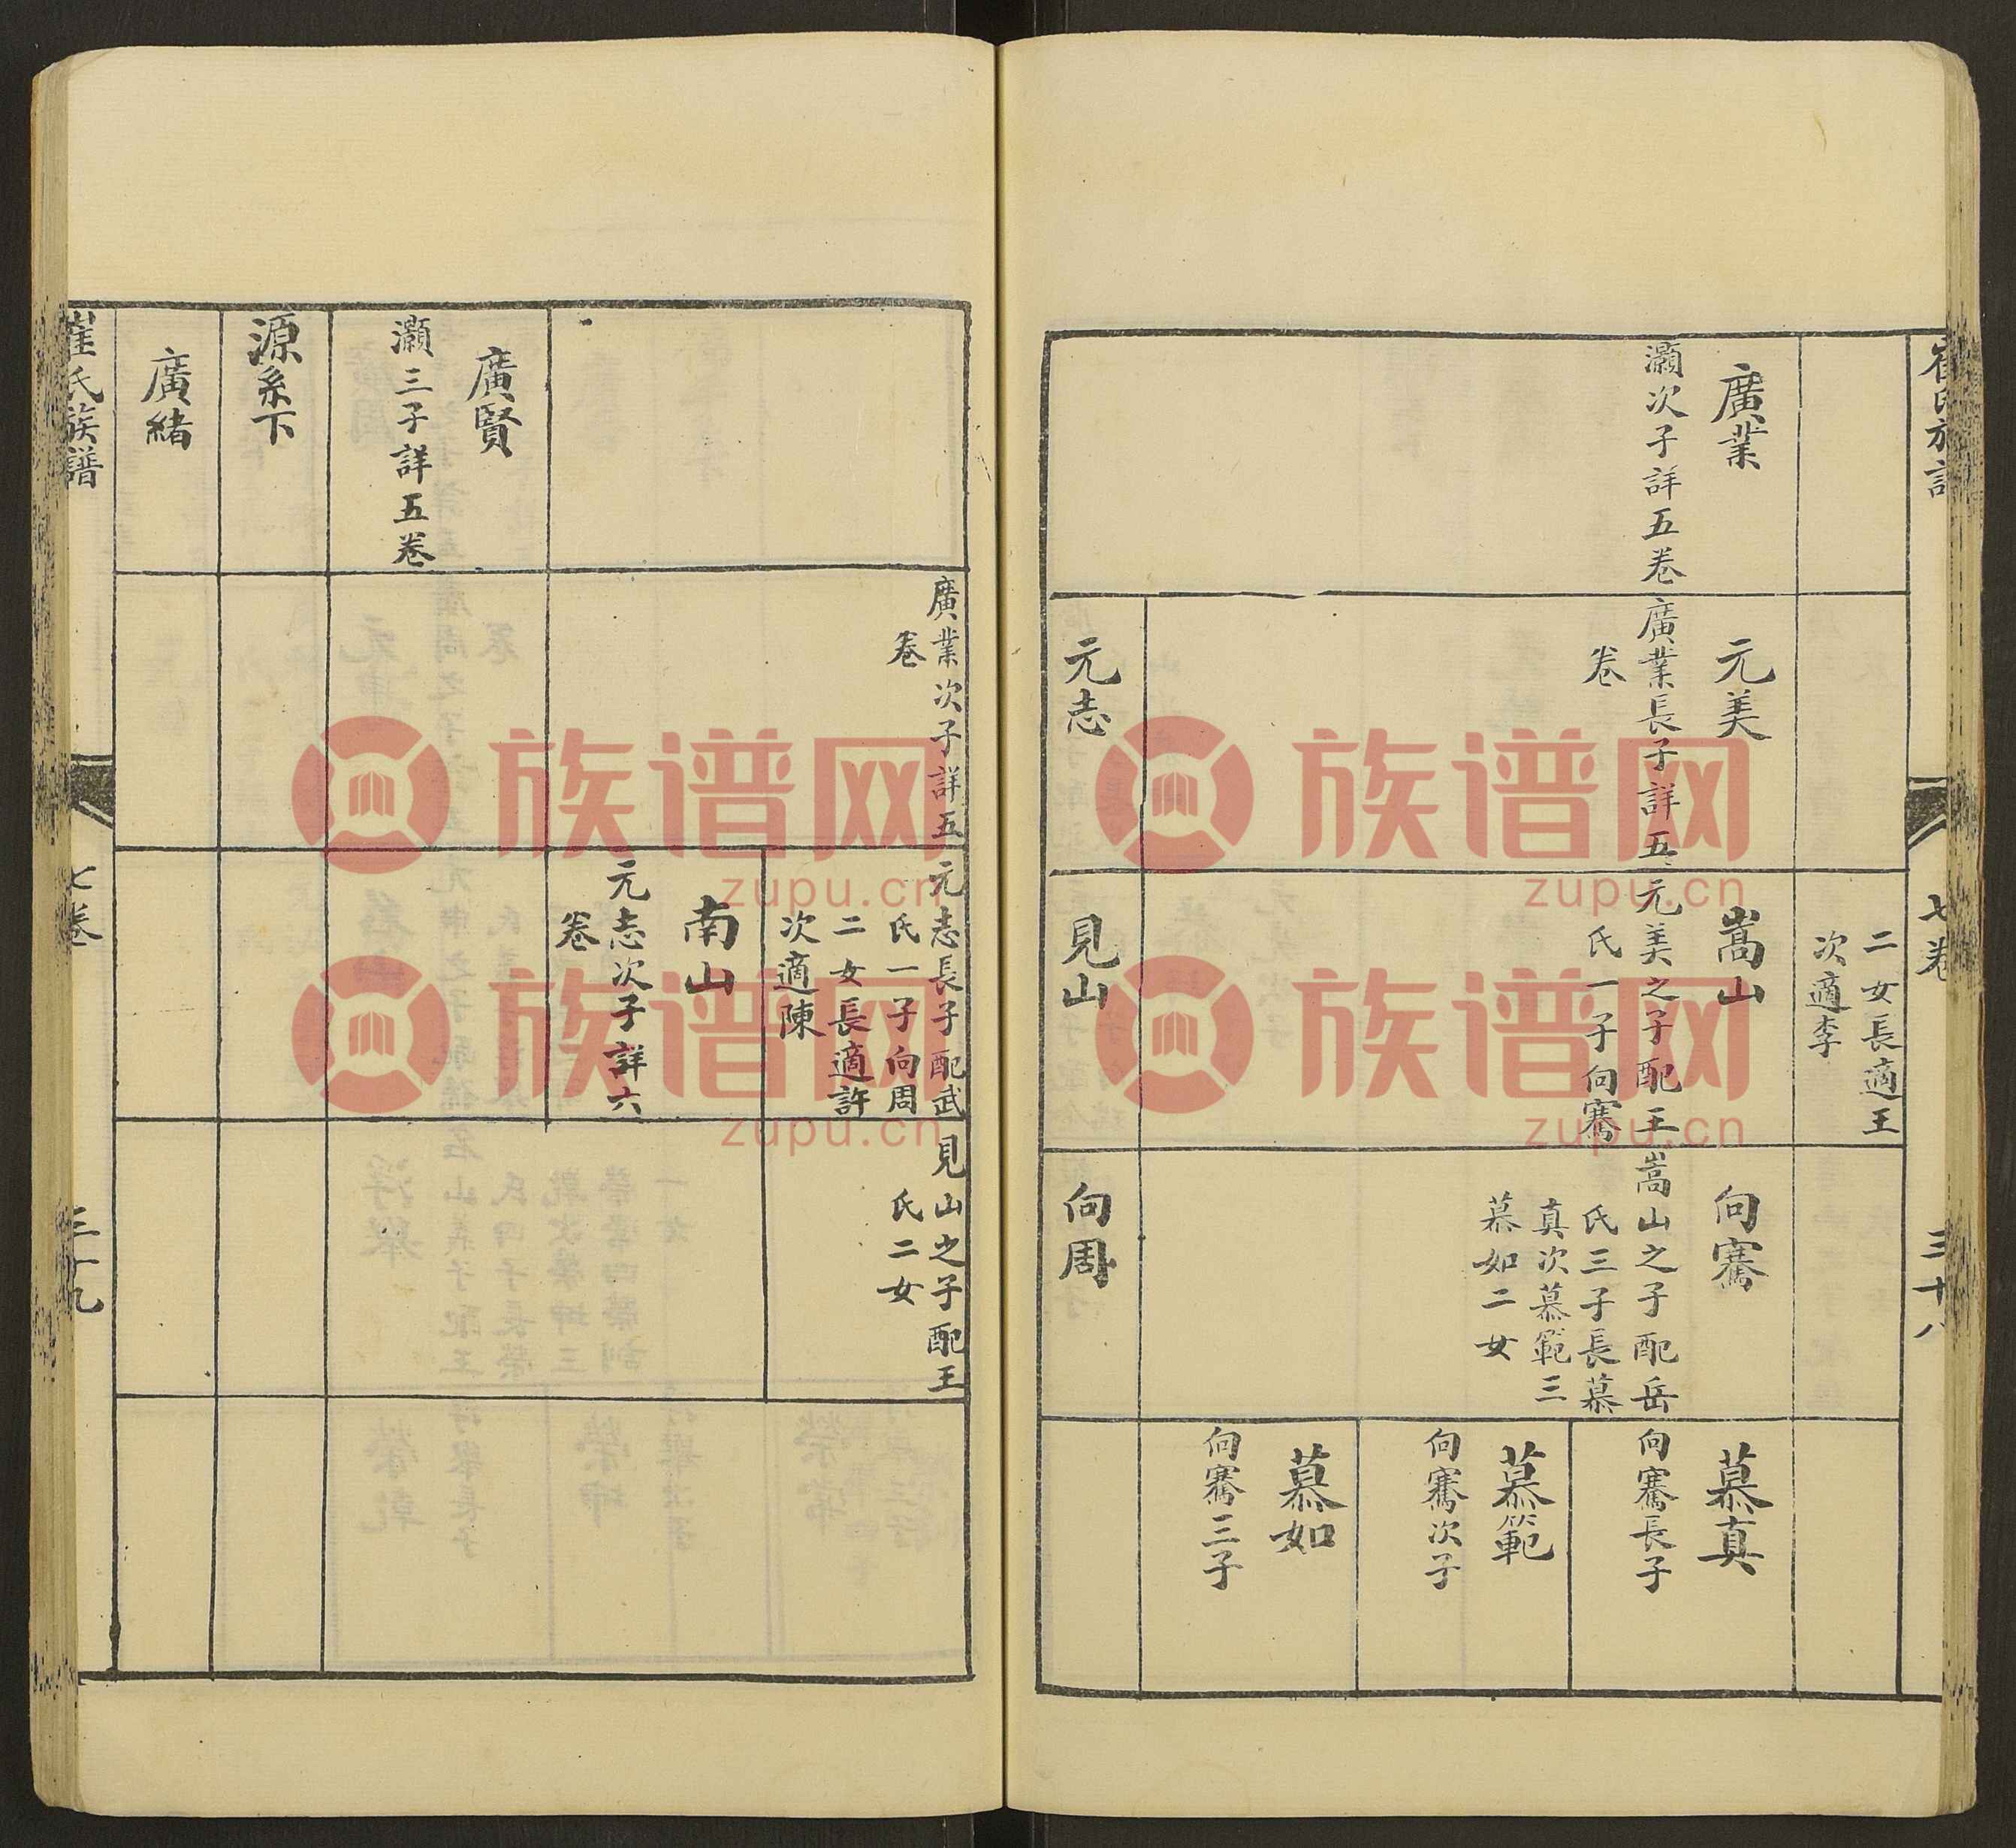 崔氏族譜
七卷
三十八
二女長適王
次適李
廣業
灝次子詳五卷
元美
廣業長子詳五
卷
嵩山
元美之子配王
氏一子向騫
向騫
嵩山之子配岳
氏三子長慕
真次慕範三
慕如二女
慕真
向騫長子
慕範
向騫次子
慕如
向騫三子
元志
見山
向周
廣業次子詳五
卷
元志長子配武
氏一子向周
二女長適許
次適陳
見山之子配王
氏二女
南山
元志次子詳六
卷
廣賢
灝三子詳五卷
源系下
廣緒
崔氏族譜
七卷
三十九
族谱网
zupu.cn
族谱网
zupu.cn
族谱网
zupu.cn
族谱网
zupu.cn